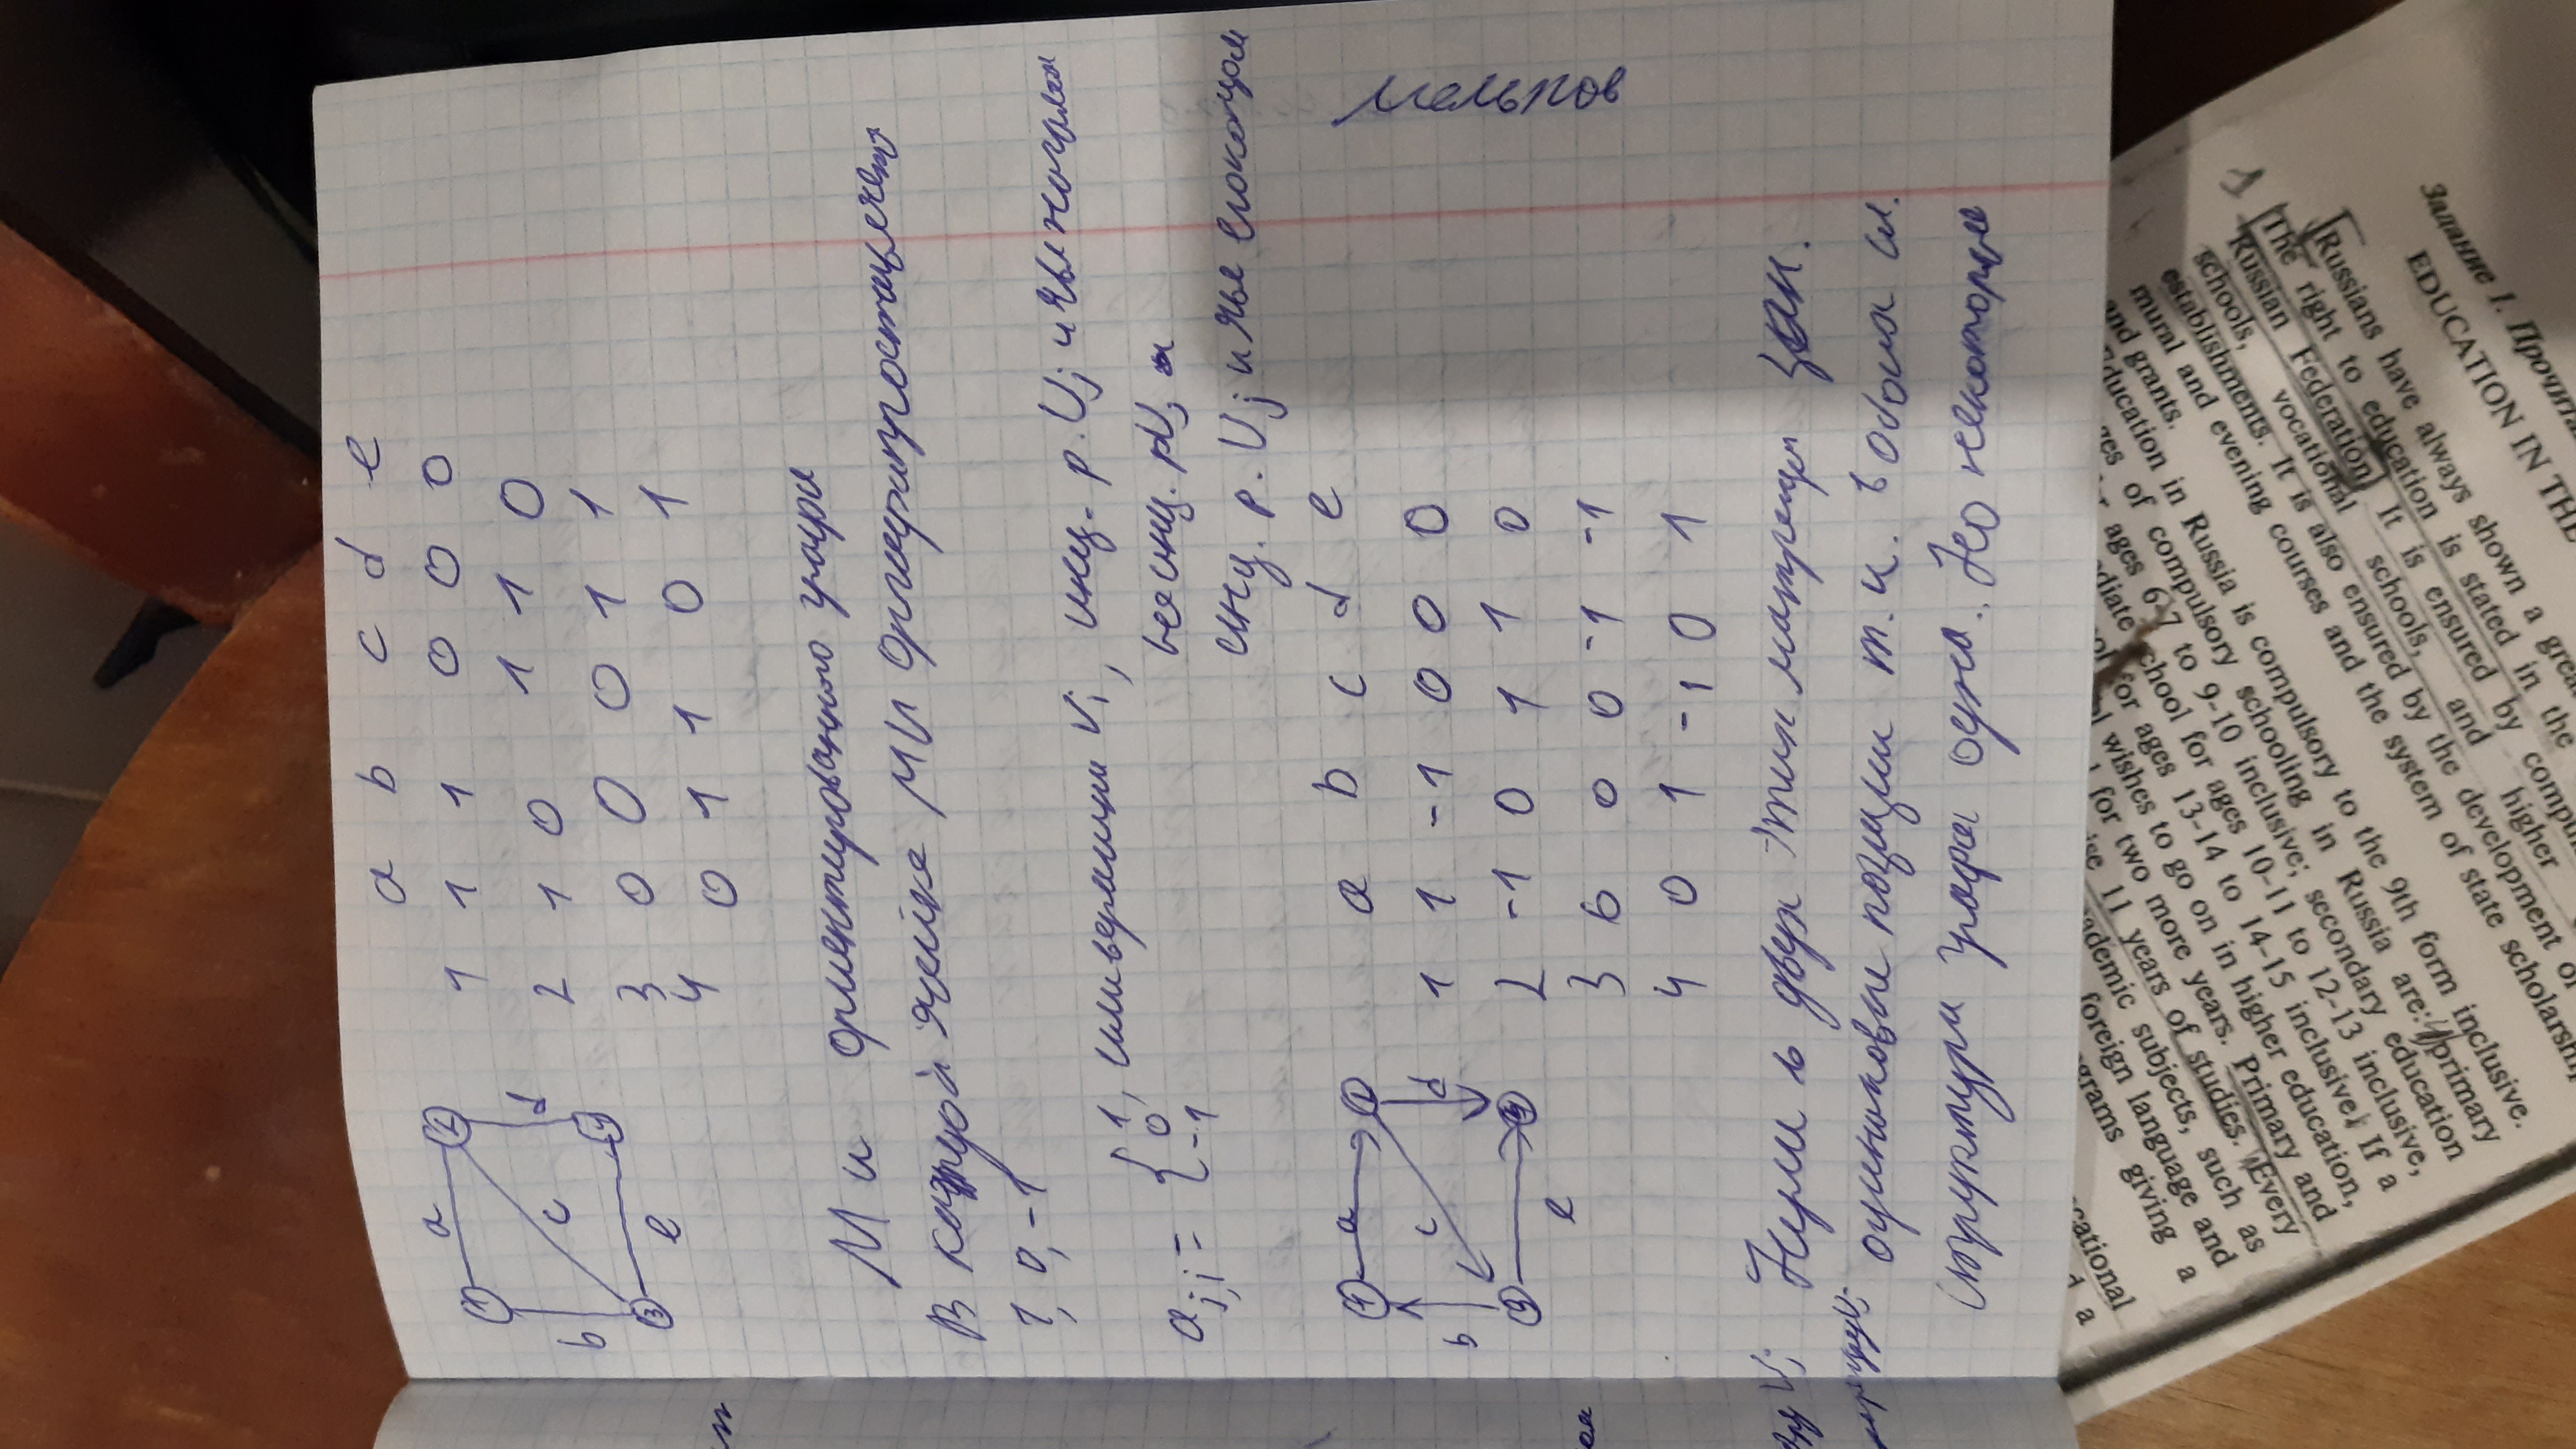 a b c d e
1 1 1 0 0 0
2 1 0 1 1 0
3 0 0 0 1 1
4 0 1 1 0 1
a
1 2
b c d
3 4
e
МИ ориентированного графа
В каждой ячейке МИ орграфа проставляется
1, 0, -1
1, если вершина Vi, инц. р. Uj и явл началом
ai,j = { 0 не инц. р Uj
-1 инц. р. Uj и явл его концом
a
1 2
b c d
3 4
e
a b c d e
1 1 -1 0 0 0
2 -1 0 1 1 0
3 0 0 0 -1 -1
4 0 1 -1 0 1
Нули в двух этих матрицах зан.
одинаковые позиции т.к. в обоих сл.
структура графа одна. Но некоторые
Задание 1. Прочита
EDUCATION IN THE
Russians have always shown a grea
right to education is stated in the
The
Russian Federation. It is ensured by compu
schools, vocational schools, and higher
establishments. It is also ensured by the development o
mural and evening courses and the system of state scholarsh
and grants.
ducation in Russia is compulsory to the 9th form inclusive.
of compulsory schooling in Russia are: primary
ages 6-7 to 9-10 inclusive; secondary education
school for ages 10-11 to 12-13 inclusive,
for ages 13-14 to 14-15 inclusive. If a
wishes to go on in higher education,
for two more years. Primary and
11 years of studies. Every
ademic subjects, such as
foreign language and
grams giving a
cational